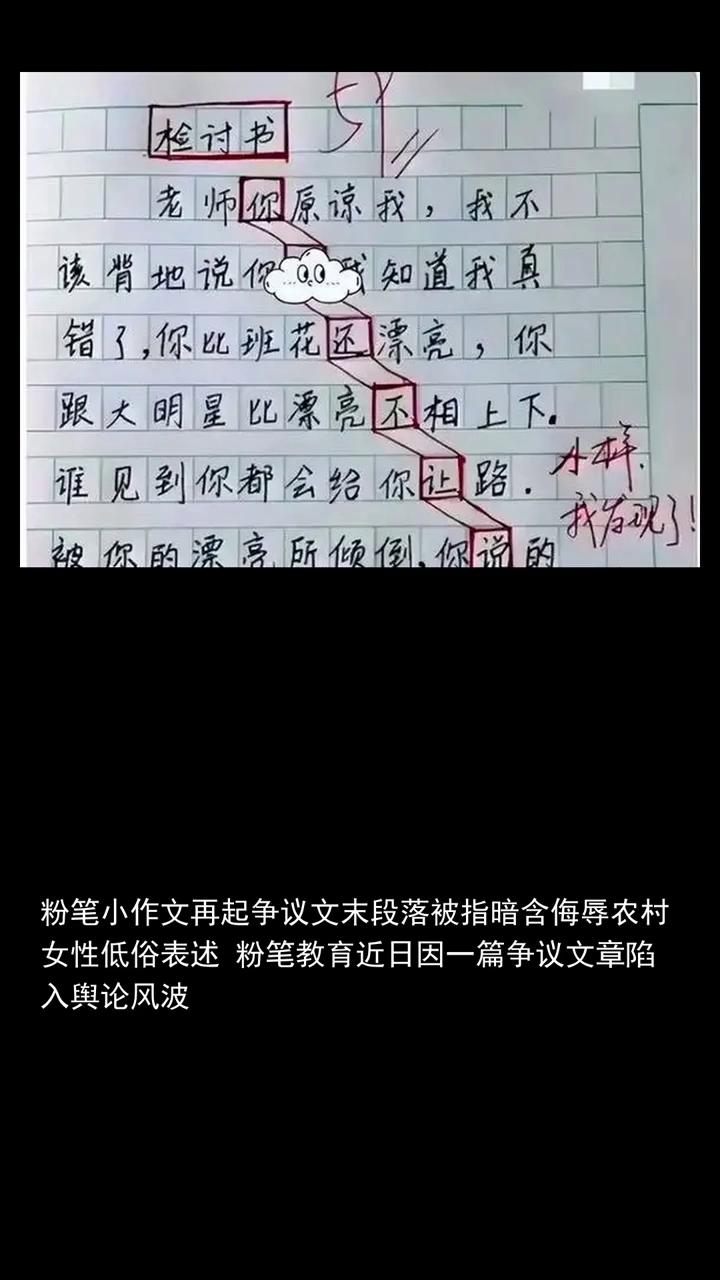 检讨书
59
老师你原谅我，我不
该背地说你 我知道我真
错了,你比班花还漂亮，你
跟大明星比漂亮不相上下。
谁见到你都会给你让路.
小样,
我发现了!
被你的漂亮所倾倒,你说的
粉笔小作文再起争议文末段落被指暗含侮辱农村
女性低俗表述 粉笔教育近日因一篇争议文章陷
入舆论风波